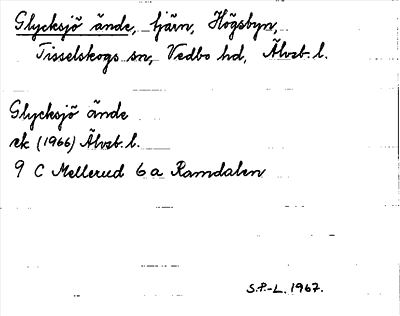 Glycksjö ände, tjärn, Högsbyn,
Tisselskogs sn, Vedbo hd, Älvsb. l.
Glycksjö ände
ek (1966) Älvsb. l.
9 C Mellerud 6 a Ramdalen
S.P.-L. 1967.